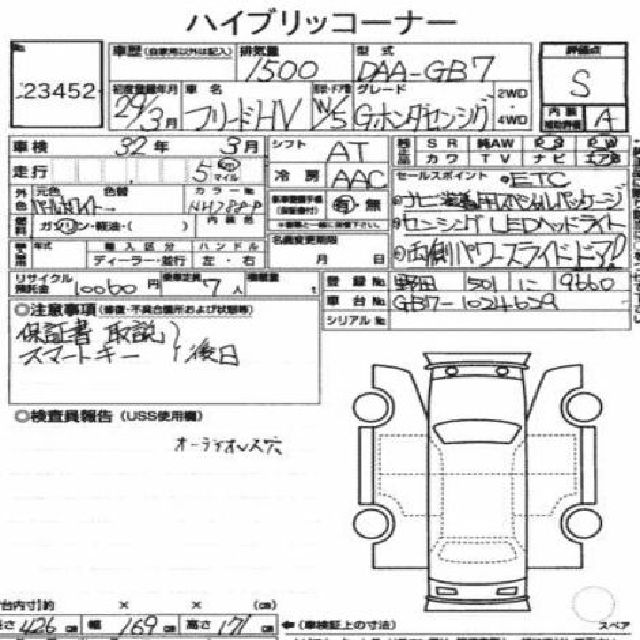 ハイブリッドコーナー
No.
23452
車歴 (自家用以外は記入)
排気量
1500
型式
DAA-GB7
評価点
S
内装
補助評価
A
初度登録年月
29年
3月
車名
フリードHV
型・ドア数
W/5
グレード
Gホンダセンシング
2WD
4WD
車検 32年 3月
シフト
AT
装備品
SR 純AW
カワ TV ナビ エアB
走行 5 マイル
冷房
AAC
セールスポイント
ETC
ナビ装着用スペシャルパッケージ
センシング LEDヘッドライト
両側パワースライドドア!
外色
元色
パールホワイト
色替
カラーNo.
NH788P
内装色
有・無
燃料 ガソリン・軽油・( )
名義変更期限
月 日
年式 輸入区分 ハンドル
ディーラー・並行 左・右
リサイクル預託金 10060円
乗車定員 7人
積載量 t
登録No. 野田 501 に 9660
車台No. GB7-1024629
シリアルNo.
◎注意事項 (修復・不具合箇所および状態等)
保証書 取説
スマートキー
後日
◎検査員報告 (USS使用欄)
オーディオレス穴
荷台内寸 約 × × (cm)
長さ 426 cm 幅 169 cm 高さ 171 cm
(車検証上の寸法)
スペア